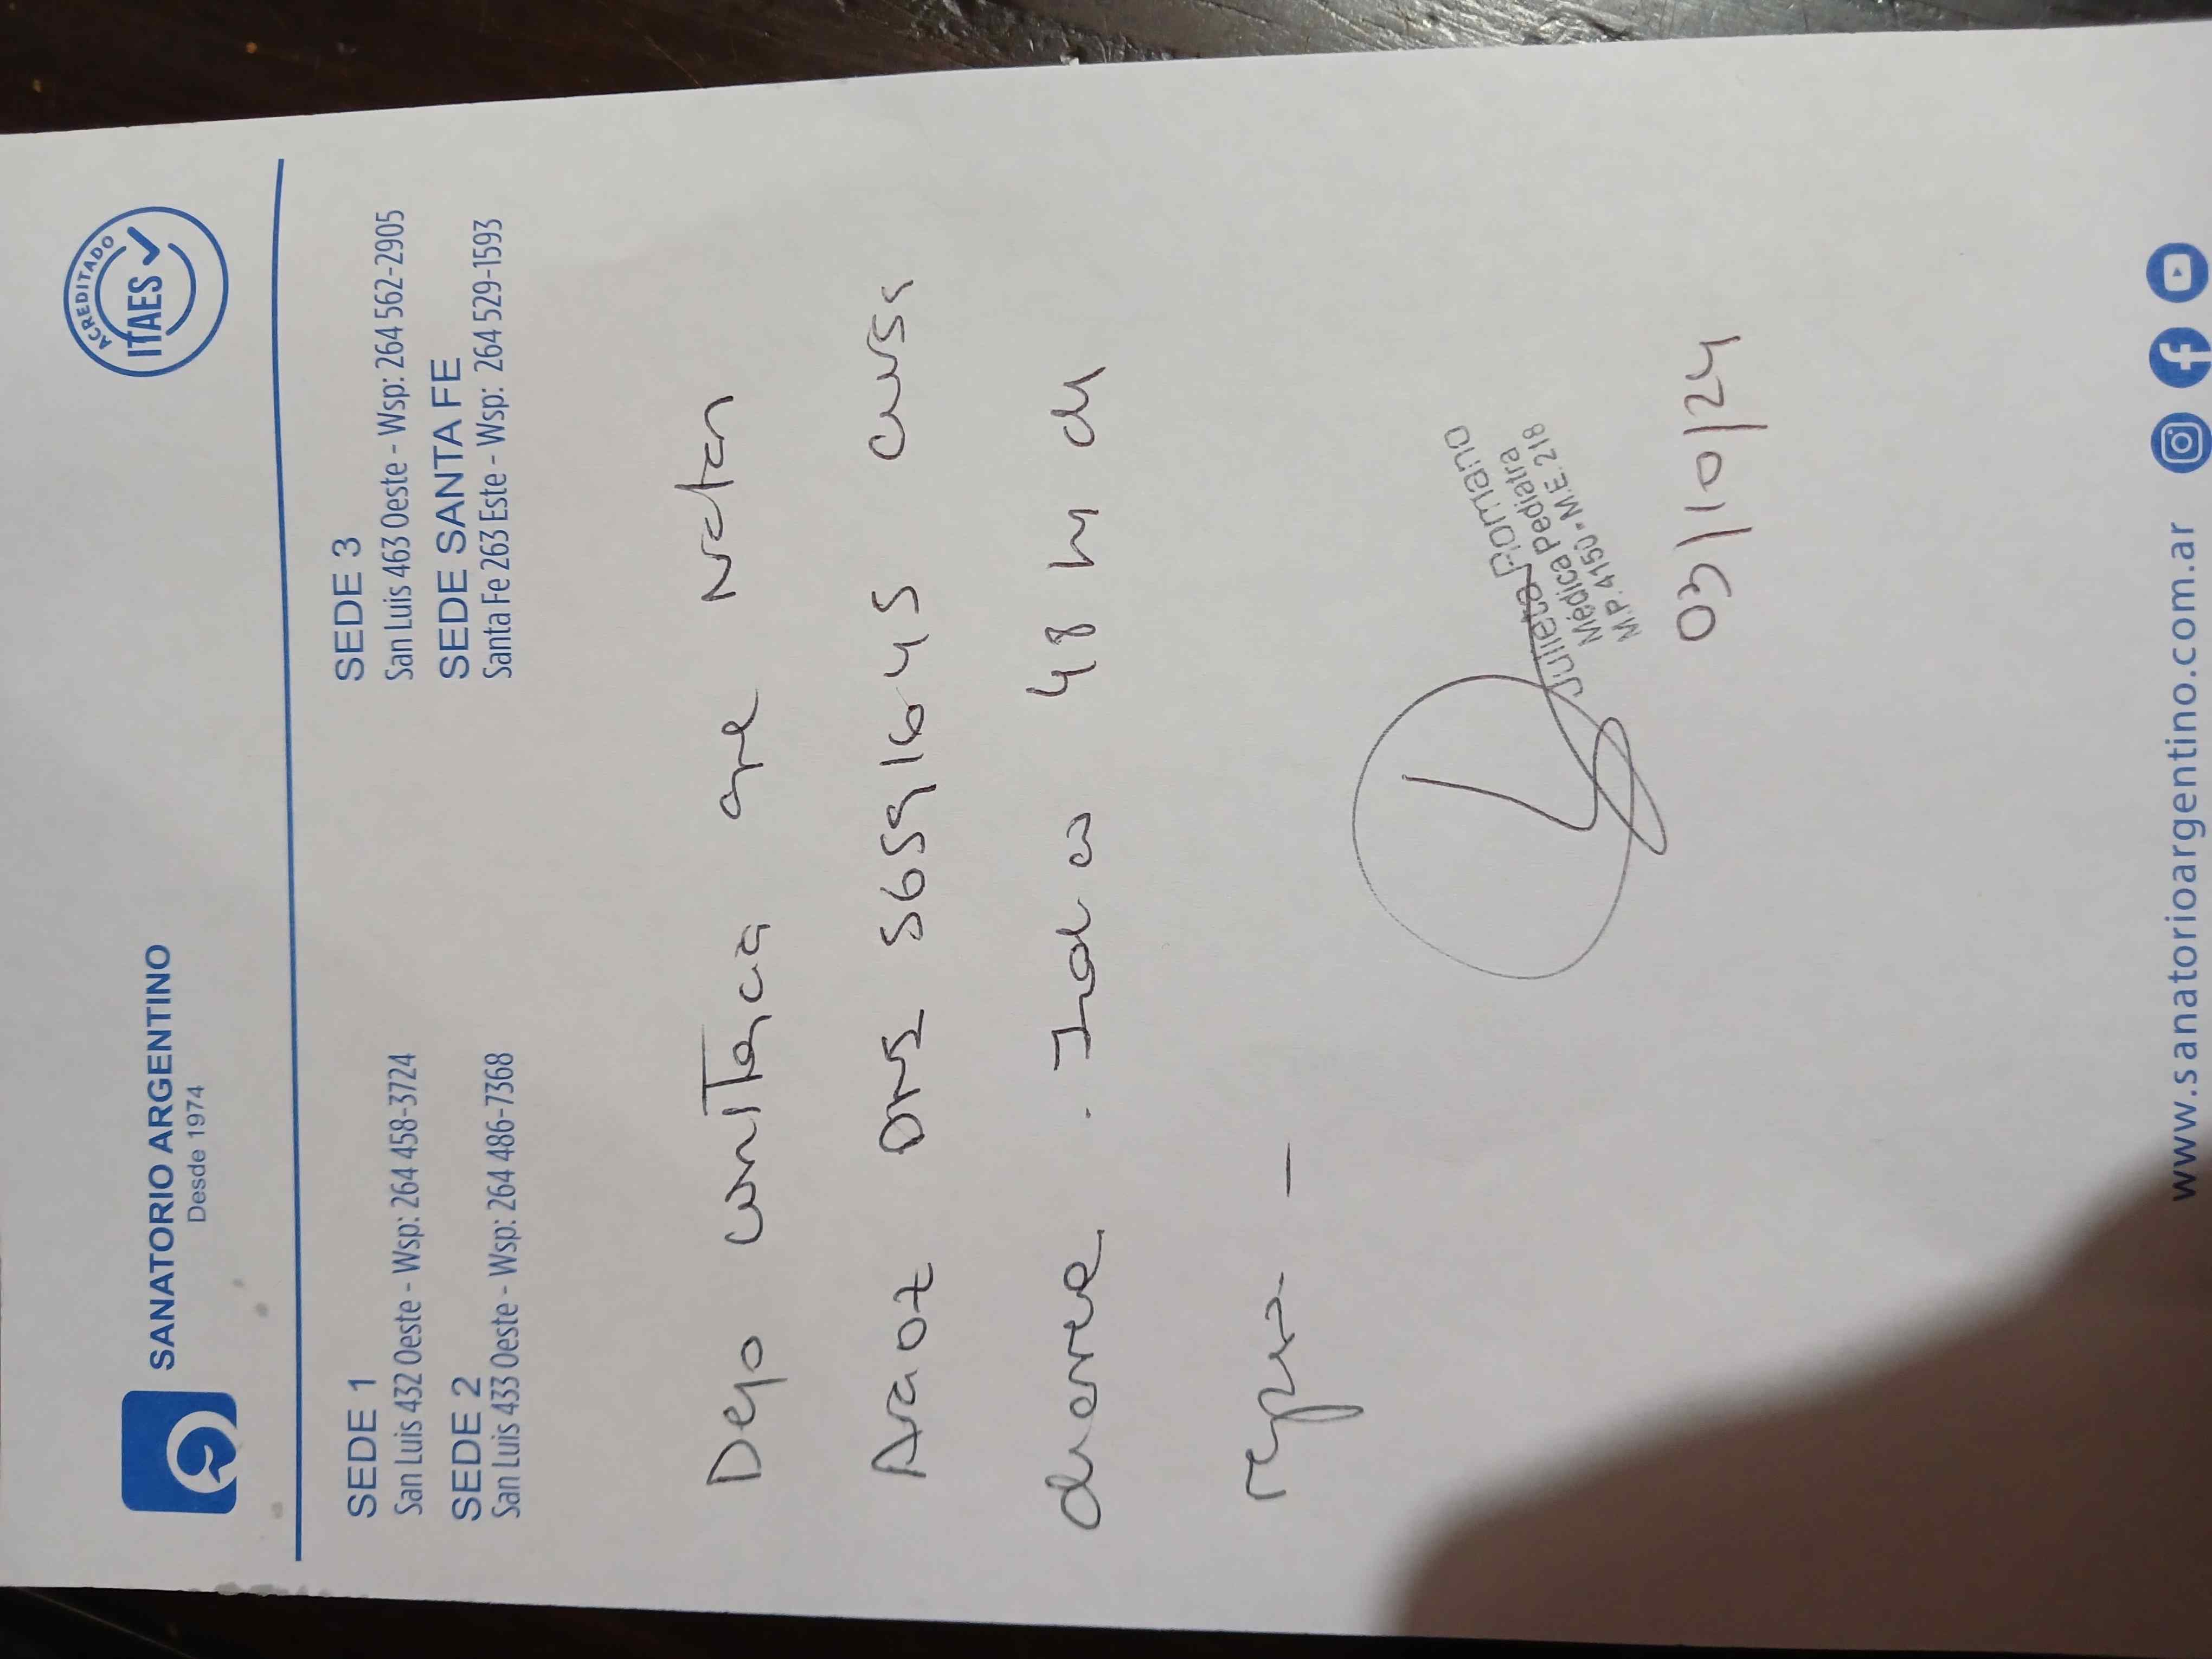 SANATORIO ARGENTINO
Desde 1974
ACREDITADO
ITAES
SEDE 1
San Luis 432 Oeste - Wsp: 264 458-3724
SEDE 2
San Luis 433 Oeste - Wsp: 264 486-7368
SEDE 3
San Luis 463 Oeste - Wsp: 264 562-2905
SEDE SANTA FE
Santa Fe 263 Este - Wsp: 264 529-1593
Dejo constancia que Natan
Araoz DNI 56591645 cursa
diarrea. Indico 48 hs de
reposo. —
Julieta Romano
Médica Pediatra
M.P. 4150 - M.E. 218
03/10/24
www.sanatorioargentino.com.ar